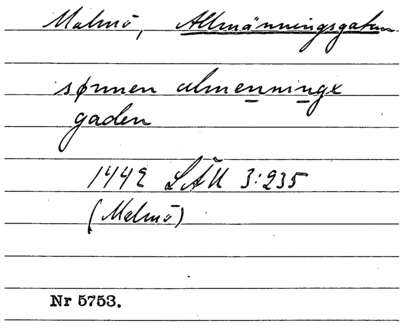 Malmö, Allmänningsgatan
sønnen almenningx
gaden
1442 LÄU 3:235
(Malmö)
Nr 5753.